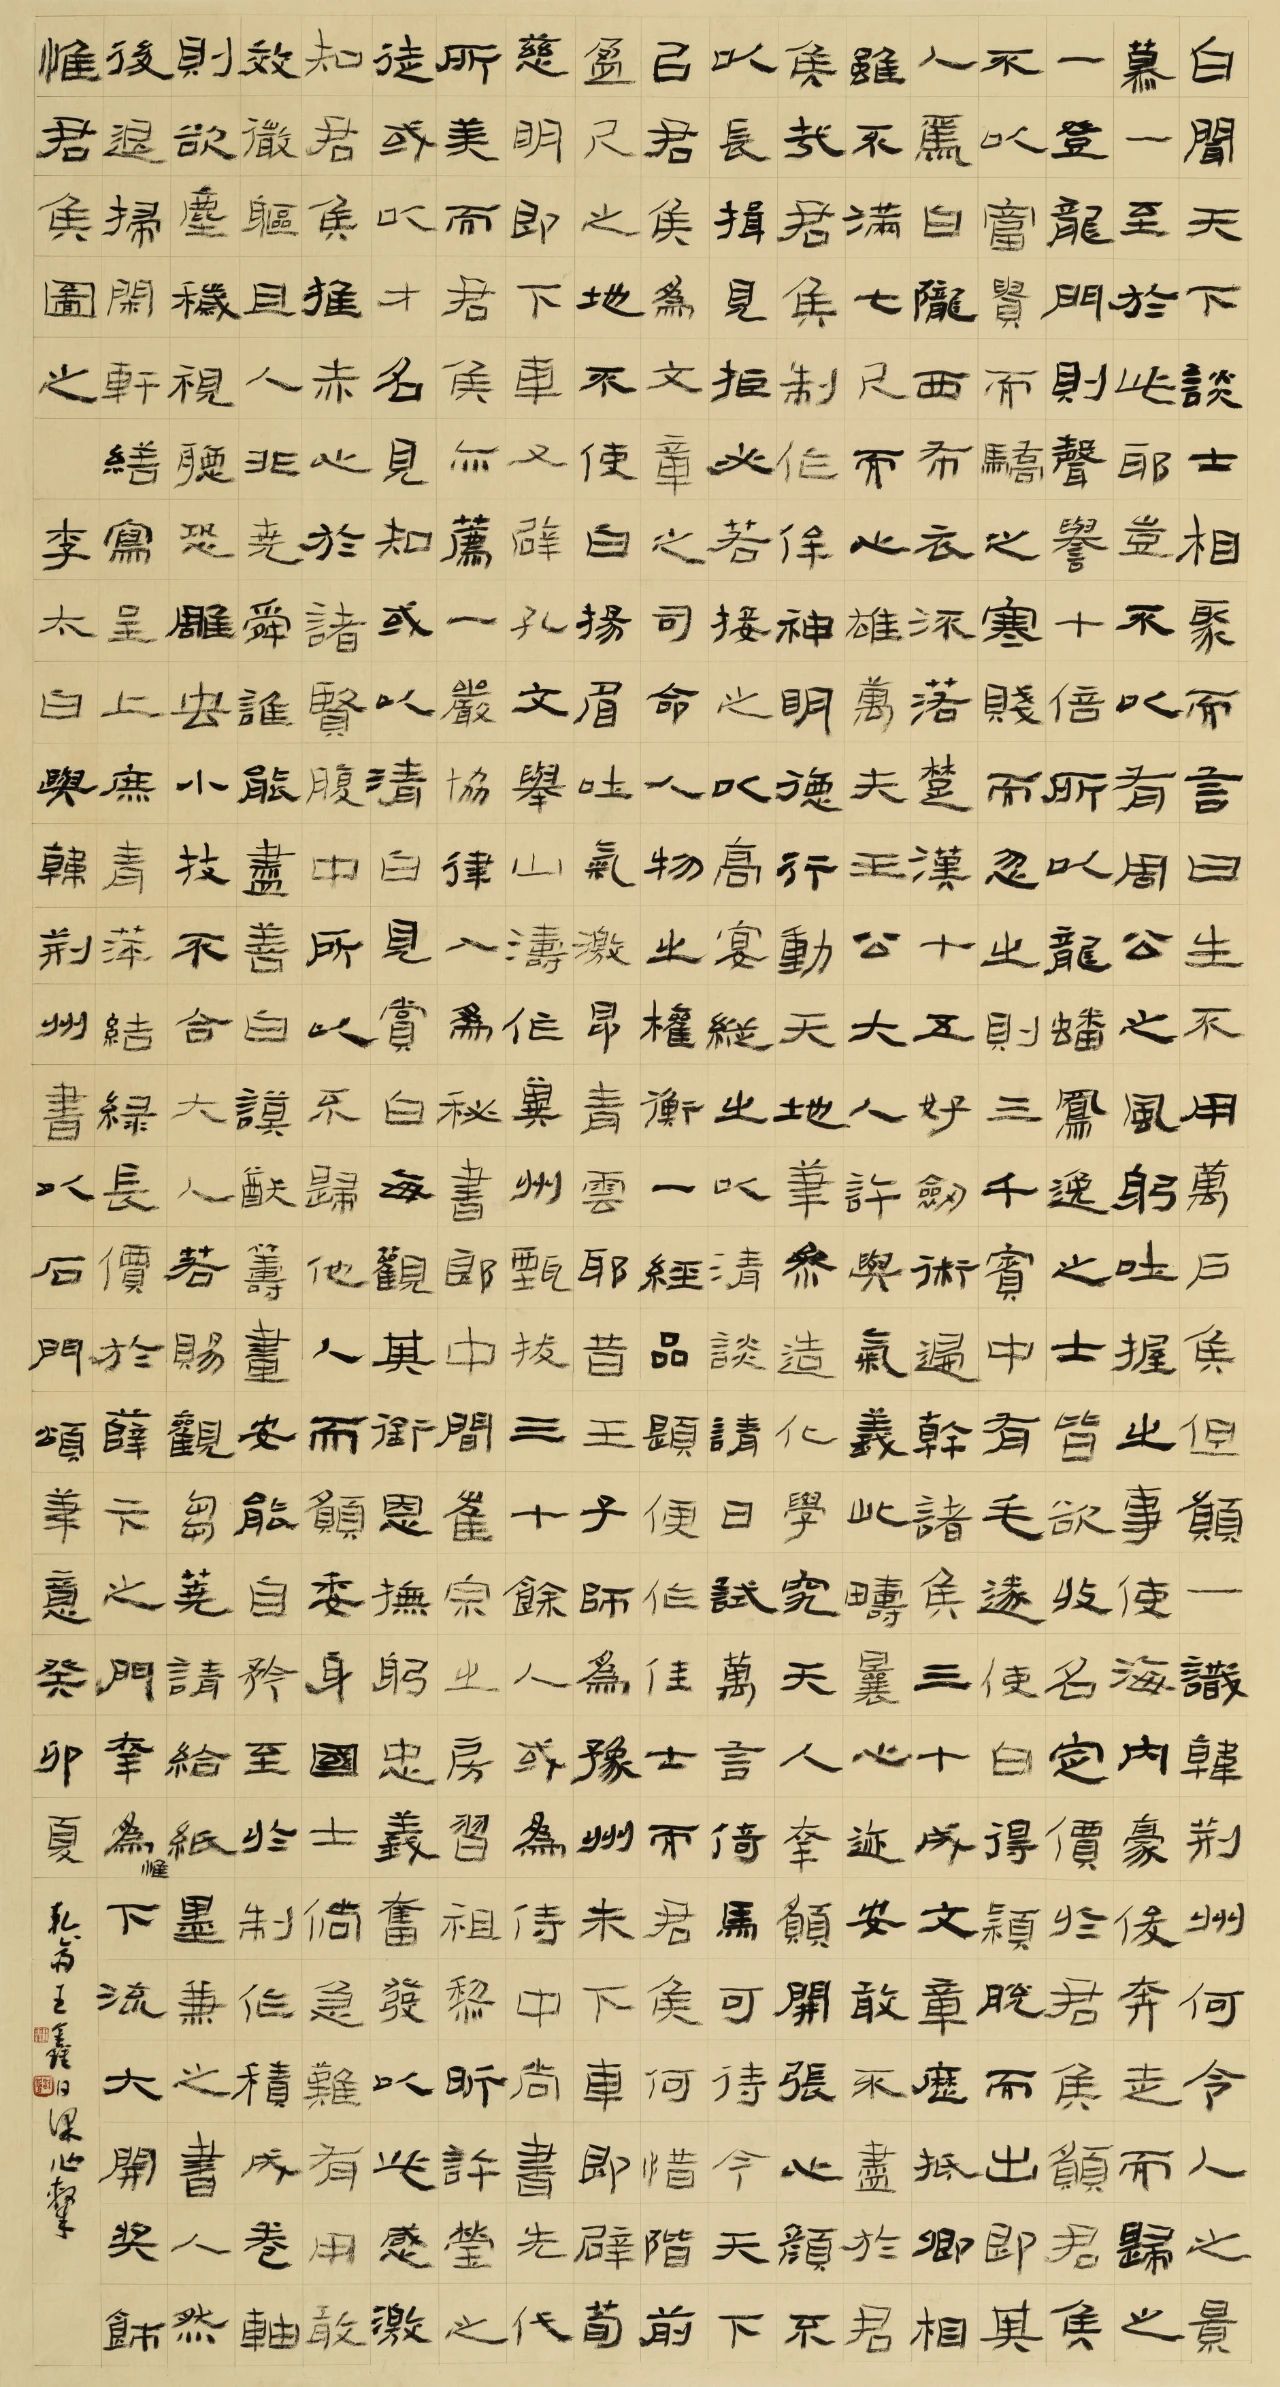 白聞天下談士相聚而言曰生不用萬户侯但願一識韓荆州何令人之景
慕一至於此耶豈不以有周公之風躬吐握之事使海內豪俊奔走而歸之
一登龍門則聲譽十倍所以龍蟠鳳逸之士皆欲收名定價於君侯願君侯
不以富貴而驕之寒賤而忽之則三千賓中有毛遂使白得穎脫而出即其
人焉白隴西布衣流落楚漢十五好劒術遍幹諸侯三十成文章歷抵卿相
雖不滿七尺而心雄萬夫王公大人許與氣義此疇曩心迹安敢不盡於君
侯哉君侯制作侔神明德行動天地筆參造化學究天人幸願開張心顏不
以長揖見拒必若接之以高宴縱之以清談請日試萬言倚馬可待今天下
己君侯為文章之司命人物之權衡一經品題便作佳士而君侯何惜階前
盈尺之地不使白揚眉吐氣激昂青雲耶昔王子師為豫州未下車即辟荀
慈明即下車又辟孔文舉山濤作冀州甄拔三十餘人或為侍中尚書先代
所美而君侯亦薦一嚴協律入為秘書郎中間崔宗之房習祖黎昕許瑩之
徒或以才名見知或以清白見賞白每觀其銜恩撫躬忠義奮發以此感激
知君侯推赤心於諸賢腹中所以不歸他人而願委身國士倘急難有用敢
效微軀且人非堯舜誰能盡善白謨猷籌畫安能自矜至於制作積成卷軸
則欲塵穢視聽恐雕蟲小技不合大人若賜觀芻蕘請給紙墨兼之書人然
後退掃閑軒繕寫呈上庶青萍結緑長價於薛卞之門幸為惟下流大開奖飾
惟君侯圖之 李太白與韓荆州書以石門頌筆意癸卯夏
王鑫日課